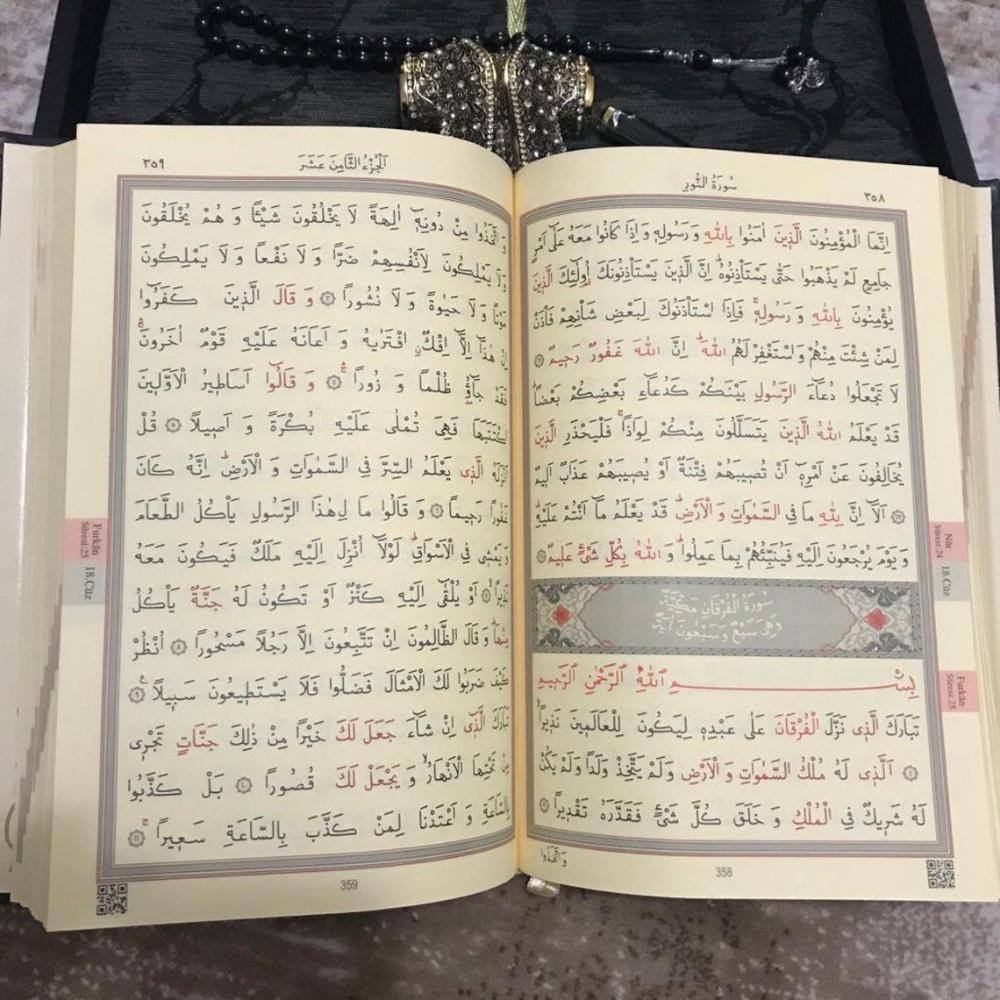 سُورَةُ النُّورِ
٣٥٨
اِنَّمَا الْمُؤْمِنُونَ الَّذ۪ينَ اٰمَنُوا بِاللّٰهِ وَرَسُولِه۪ وَاِذَا كَانُوا مَعَهُ عَلٰٓى اَمْرٍ
جَامِعٍ لَمْ يَذْهَبُوا حَتّٰى يَسْتَأْذِنُوهُۜ اِنَّ الَّذ۪ينَ يَسْتَأْذِنُونَكَ اُو۬لٰٓئِكَ الَّذ۪ينَ
يُؤْمِنُونَ بِاللّٰهِ وَرَسُولِه۪ۚ فَاِذَا اسْتَأْذَنُوكَ لِبَعْضِ شَأْنِهِمْ فَأْذَنْ
لِمَنْ شِئْتَ مِنْهُمْ وَاسْتَغْفِرْ لَهُمُ اللّٰهَۜ اِنَّ اللّٰهَ غَفُورٌ رَح۪يمٌ
لَا تَجْعَلُوا دُعَٓاءَ الرَّسُولِ بَيْنَكُمْ كَدُعَٓاءِ بَعْضِكُمْ بَعْضًاۜ
قَدْ يَعْلَمُ اللّٰهُ الَّذ۪ينَ يَتَسَلَّلُونَ مِنْكُمْ لِوَاذًاۚ فَلْيَحْذَرِ الَّذ۪ينَ
يُخَالِفُونَ عَنْ اَمْرِه۪ٓ اَنْ تُص۪يبَهُمْ فِتْنَةٌ اَوْ يُص۪يبَهُمْ عَذَابٌ اَل۪يمٌ
اَلَٓا اِنَّ لِلّٰهِ مَا فِي السَّمٰوَاتِ وَالْاَرْضِۜ قَدْ يَعْلَمُ مَٓا اَنْتُمْ عَلَيْهِۜ
وَيَوْمَ يُرْجَعُونَ اِلَيْهِ فَيُنَبِّئُهُمْ بِمَا عَمِلُواۜ وَاللّٰهُ بِكُلِّ شَيْءٍ عَل۪يمٌ
سُورَةُ الْفُرْقَانِ مَكِّيَّةٌ
وَهِيَ سَبْعٌ وَسَبْعُونَ اٰيَةً
بِسْــــــــمِ اللّٰهِ الرَّحْمٰنِ الرَّح۪يمِ
تَبَارَكَ الَّذ۪ي نَزَّلَ الْفُرْقَانَ عَلٰى عَبْدِه۪ لِيَكُونَ لِلْعَالَم۪ينَ نَذ۪يرًاۙ
۝١ اَلَّذ۪ي لَهُ مُلْكُ السَّمٰوَاتِ وَالْاَرْضِ وَلَمْ يَتَّخِذْ وَلَدًا وَلَمْ يَكُنْ
لَهُ شَر۪يكٌ فِي الْمُلْكِ وَخَلَقَ كُلَّ شَيْءٍ فَقَدَّرَهُ تَقْد۪يرًا ۝٢
وَاتَّخَذُوا
358
Nûr
Sûresi:24
18.Cüz
Furkân
Sûresi:25
اَلْجُزْءُ الثَّامِنَ عَشَرَ
٣٥٩
وَاتَّخَذُوا مِنْ دُونِه۪ٓ اٰلِهَةً لَا يَخْلُقُونَ شَيْـًٔا وَهُمْ يُخْلَقُونَ
وَلَا يَمْلِكُونَ لِاَنْفُسِهِمْ ضَرًّا وَلَا نَفْعًا وَلَا يَمْلِكُونَ
مَوْتًا وَلَا حَيٰوةً وَلَا نُشُورًا ۝٣ وَقَالَ الَّذ۪ينَ كَفَرُٓوا
اِنْ هٰذَٓا اِلَّٓا اِفْكٌۨ افْتَرٰيهُ وَاَعَانَهُ عَلَيْهِ قَوْمٌ اٰخَرُونَۚۛ
فَقَدْ جَٓاؤُ۫ ظُلْمًا وَزُورًاۚۛ ۝٤ وَقَالُٓوا اَسَاط۪يرُ الْاَوَّل۪ينَ
اكْتَتَبَهَا فَهِيَ تُمْلٰى عَلَيْهِ بُكْرَةً وَاَص۪يلًا ۝٥ قُلْ
اَنْزَلَهُ الَّذ۪ي يَعْلَمُ السِّرَّ فِي السَّمٰوَاتِ وَالْاَرْضِۜ اِنَّهُ كَانَ
غَفُورًا رَح۪يمًا ۝٦ وَقَالُوا مَا لِهٰذَا الرَّسُولِ يَأْكُلُ الطَّعَامَ
وَيَمْش۪ي فِي الْاَسْوَاقِۜ لَوْلَٓا اُنْزِلَ اِلَيْهِ مَلَكٌ فَيَكُونَ مَعَهُ
نَذ۪يرًاۙ ۝٧ اَوْ يُلْقٰٓى اِلَيْهِ كَنْزٌ اَوْ تَكُونُ لَهُ جَنَّةٌ يَأْكُلُ
مِنْهَاۜ وَقَالَ الظَّالِمُونَ اِنْ تَتَّبِعُونَ اِلَّا رَجُلًا مَسْحُورًا ۝٨ اُنْظُرْ
كَيْفَ ضَرَبُوا لَكَ الْاَمْثَالَ فَضَلُّوا فَلَا يَسْتَط۪يعُونَ سَب۪يلًا۟ ۝٩
تَبَارَكَ الَّذ۪ٓي اِنْ شَٓاءَ جَعَلَ لَكَ خَيْرًا مِنْ ذٰلِكَ جَنَّاتٍ تَجْر۪ي
مِنْ تَحْتِهَا الْاَنْهَارُۙ وَيَجْعَلْ لَكَ قُصُورًا ۝١٠ بَلْ كَذَّبُوا
بِالسَّاعَةِ وَاَعْتَدْنَا لِمَنْ كَذَّبَ بِالسَّاعَةِ سَع۪يرًاۚ ۝١١
359
Furkân
Sûresi:25
18.Cüz